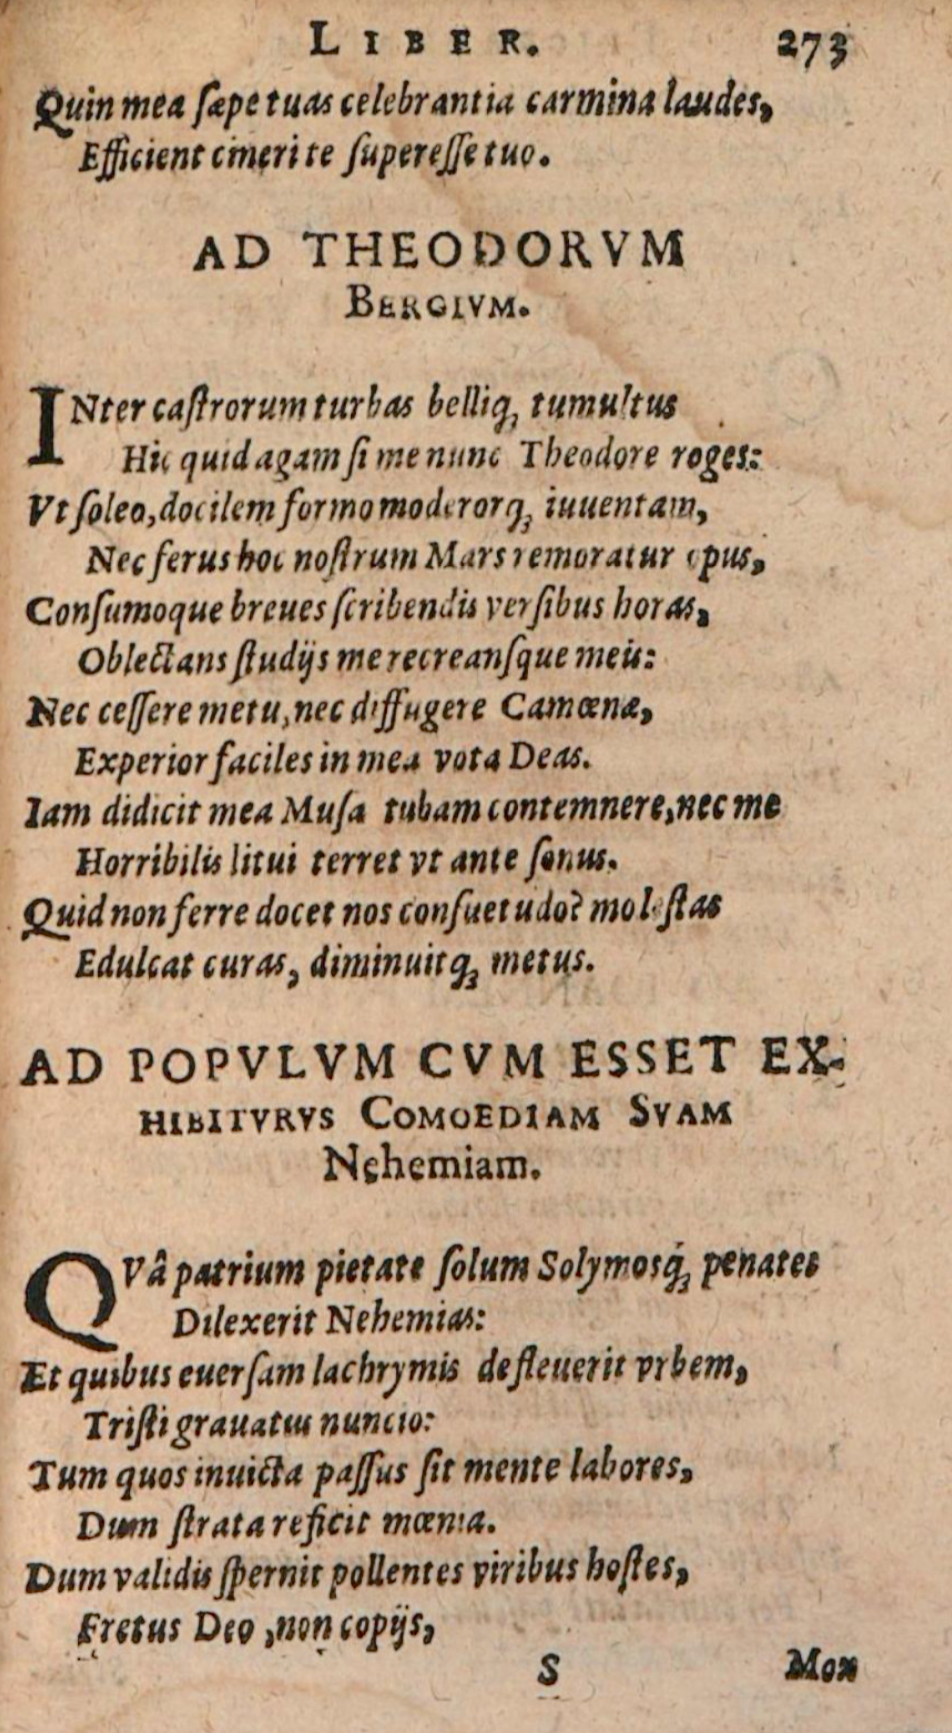 LIBER. 273
Quin mea sæpe tuas celebrantia carmina laudes,
Efficient cineri te superesse tuo.
AD THEODORVM
BERGIVM.
INter castrorum turbas belliq; tumultus
Hic quid agam si me nunc Theodore roges:
Vt soleo, docilem formo moderorq; iuuentam,
Nec ferus hoc nostrum Mars remoratur opus,
Consumoque breues scribendis versibus horas,
Oblectans studijs me recreansque meis:
Nec cessere metu, nec diffugere Camœnæ,
Experior faciles in mea vota Deas.
Iam didicit mea Musa tubam contemnere, nec me
Horribilis litui terret vt ante sonus.
Quid non ferre docet nos consuetudo? molestas
Edulcat curas, diminuitq; metus.
AD POPVLVM CVM ESSET EX-
HIBITVRVS COMOEDIAM SVAM
Nehemiam.
QVâ patrium pietate solum Solymosq́; penates
Dilexerit Nehemias:
Et quibus euersam lachrymis defleuerit vrbem,
Tristi grauatus nuncio:
Tum quos inuicta passus sit mente labores,
Dum strata reficit mœnia.
Dum validis spernit pollentes viribus hostes,
Fretus Deo, non copijs,
S Mox